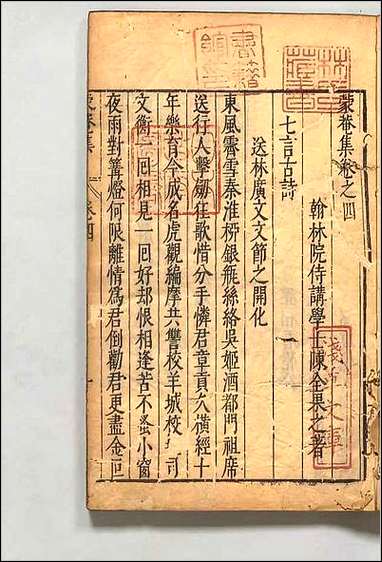 蒙菴集卷之四
翰林院侍講學士陳全果之著
七言古詩
送林廣文文節之開化
東風霽雪秦淮栁銀瓶絲絡吳姬酒都門祖席
送行人擊劒狂歌惜分手憐君童貢久橫經十
年樂育今成名虎觀編摩共讐校羊城校司
文衡一回相見一回好却恨相逢苦不蚤小窗
夜雨對篝燈何限離情為君倒勸君更盡金叵
卷四